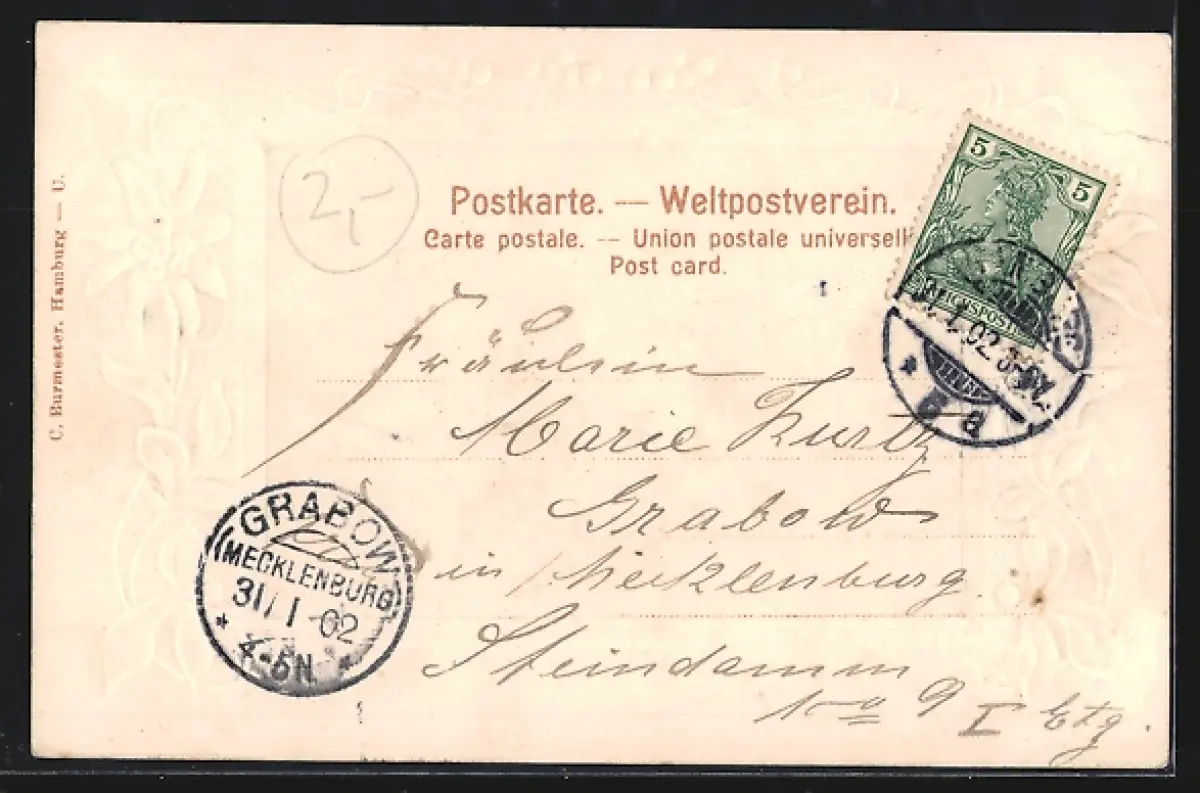 C. Burmester. Hamburg — U.
2,-
Postkarte. — Weltpostverein.
Carte postale. -- Union postale universell
Post card.
5
5
REICHSPOST
Fräulein
Marie Kurtz
Grabow
in Mecklenburg.
Steindamm
No 9 I Etg.
GRABOW
(MECKLENBURG)
31/1-02
4-5N